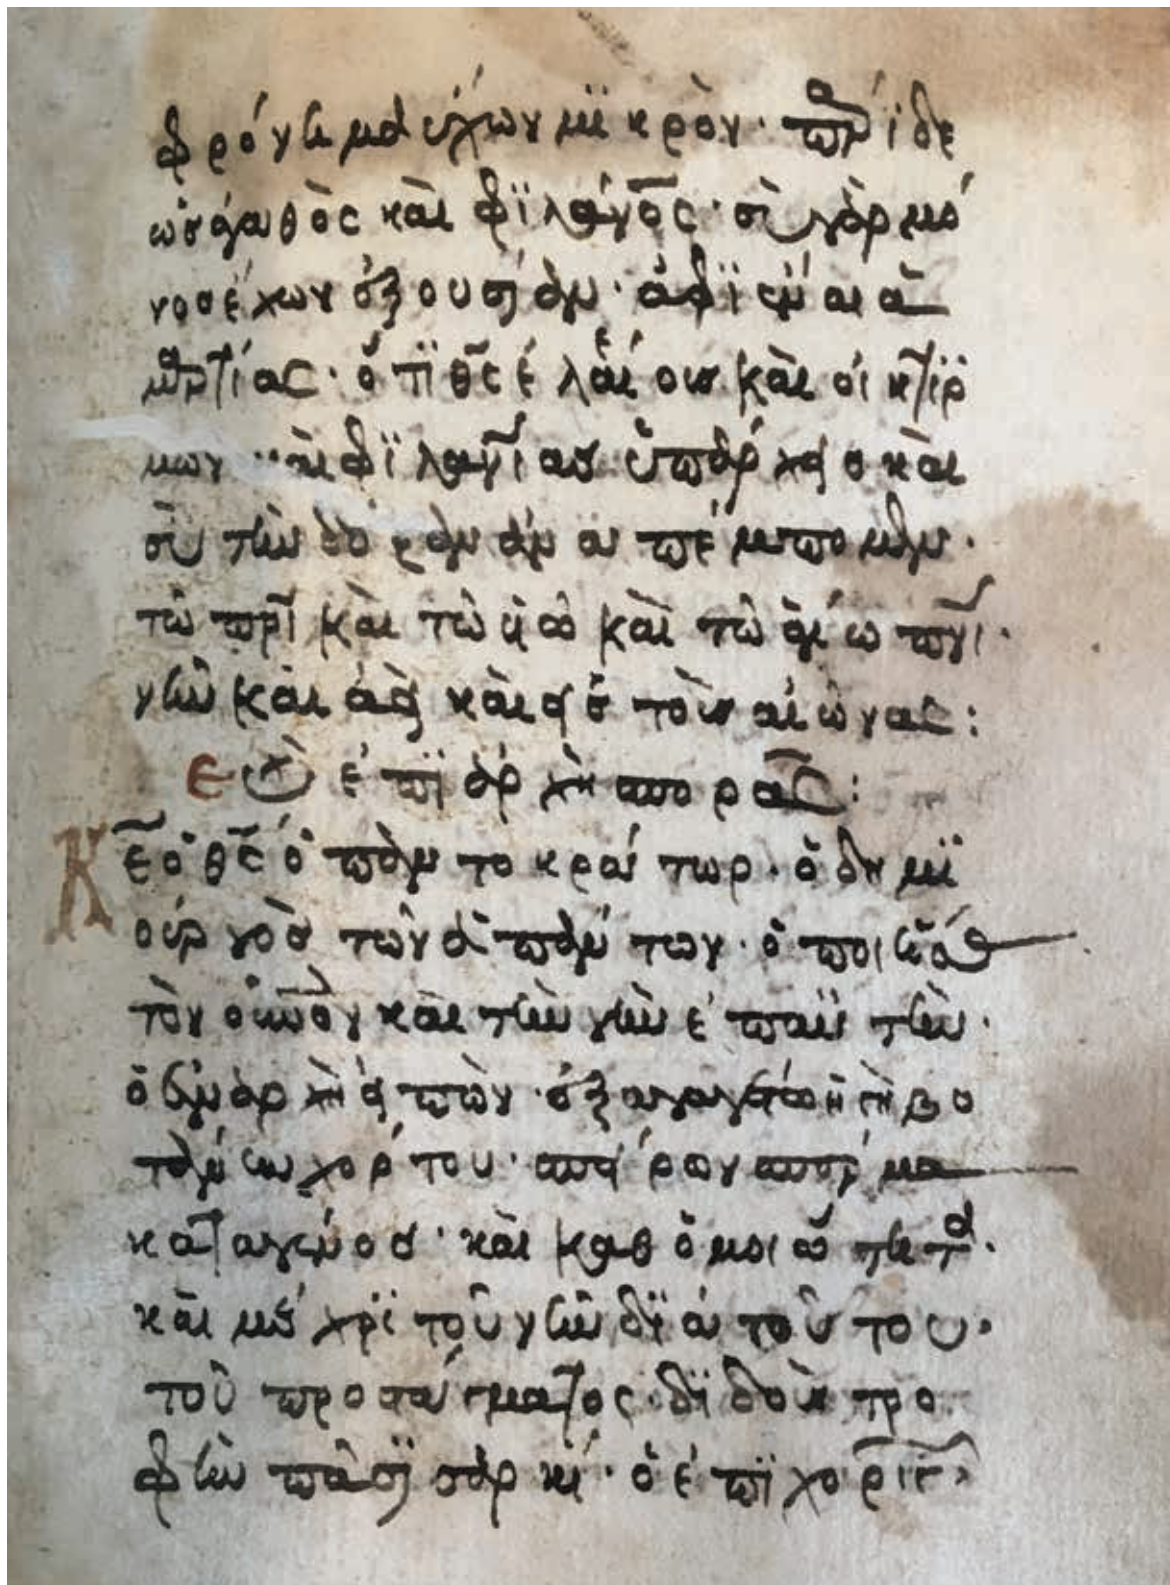 φρόνημα έχων μϊκρὸν· πάρϊδε
ὡς ἀγαθὸς καὶ φϊλάνος· σὺ γὰρ μό
νος ἔχων ἐξουσίαν· ἀφϊέναι ἁ
μαρτίας· ὅτϊ θς ἐλέους καὶ οἰκτϊρ
μῶν καὶ φϊλανίας ὑπάρχεις καὶ
σοὶ τὴν δόξαν ἀναπέμπομεν·
τῶ πρι καὶ τῶ υω καὶ τῶ ἁγίω πνι·
νῦν καὶ ἀεὶ καὶ εἰς τοὺς αἰῶνας:
εὐχὴ ἐπϊ ἀρχὴ σπορᾶς:
Κε ὁ θς ὁ παντοκράτωρ· ὁ δημϊ
ουργὸς τῶν ἁπάντων· ὁ ποιήσας
τὸν οὐνον καὶ τὴν γῆν ἐπ αὐτήν·
ὁ ἐν ἀρχῆ εἰπὼν ἐξαγαγέτω ἡ γῆ βο
τάνην χόρτου· σπεῖρον σπέρμα
κατὰ γένος· καὶ καθ ὁμοιότητα·
καὶ μέχρϊ τοῦ νῦν δϊὰ τούτου·
τοῦ προστάγματος δϊδοὺς τρο
φὴν πάση σαρκί· ὁ ἐπϊχορηγ